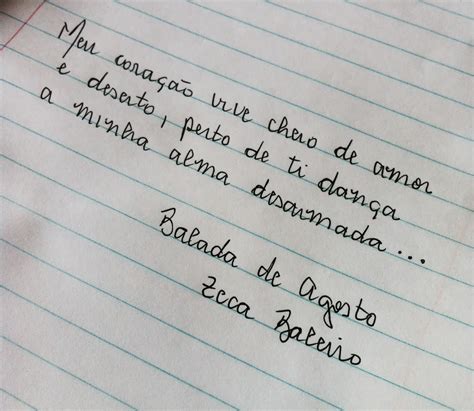 Meu coração vive cheio de amor
e deserto, perto de ti dança
a minha alma desarmada...
Balada de Agosto
Zeca Baleiro